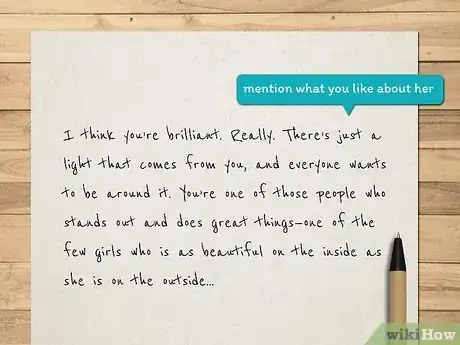 mention what you like about her
I think you're brilliant. Really. There's just a
light that comes from you, and everyone wants
to be around it. You're one of those people who
stands out and does great things–one of the
few girls who is as beautiful on the inside as
she is on the outside...
wikiHow